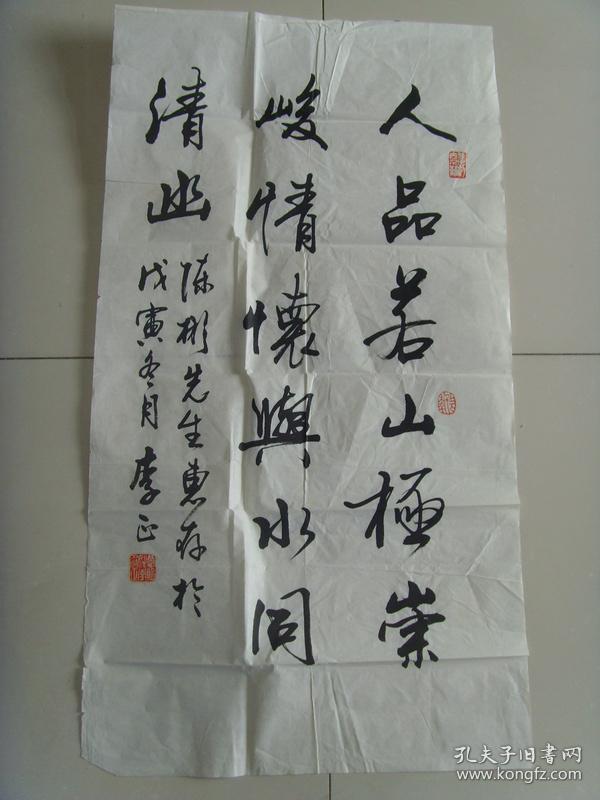 人品若山極崇
峻情懷與水同
清幽
陳彬先生惠存於
戊寅冬月李正
孔夫子旧书网
www.kongfz.com